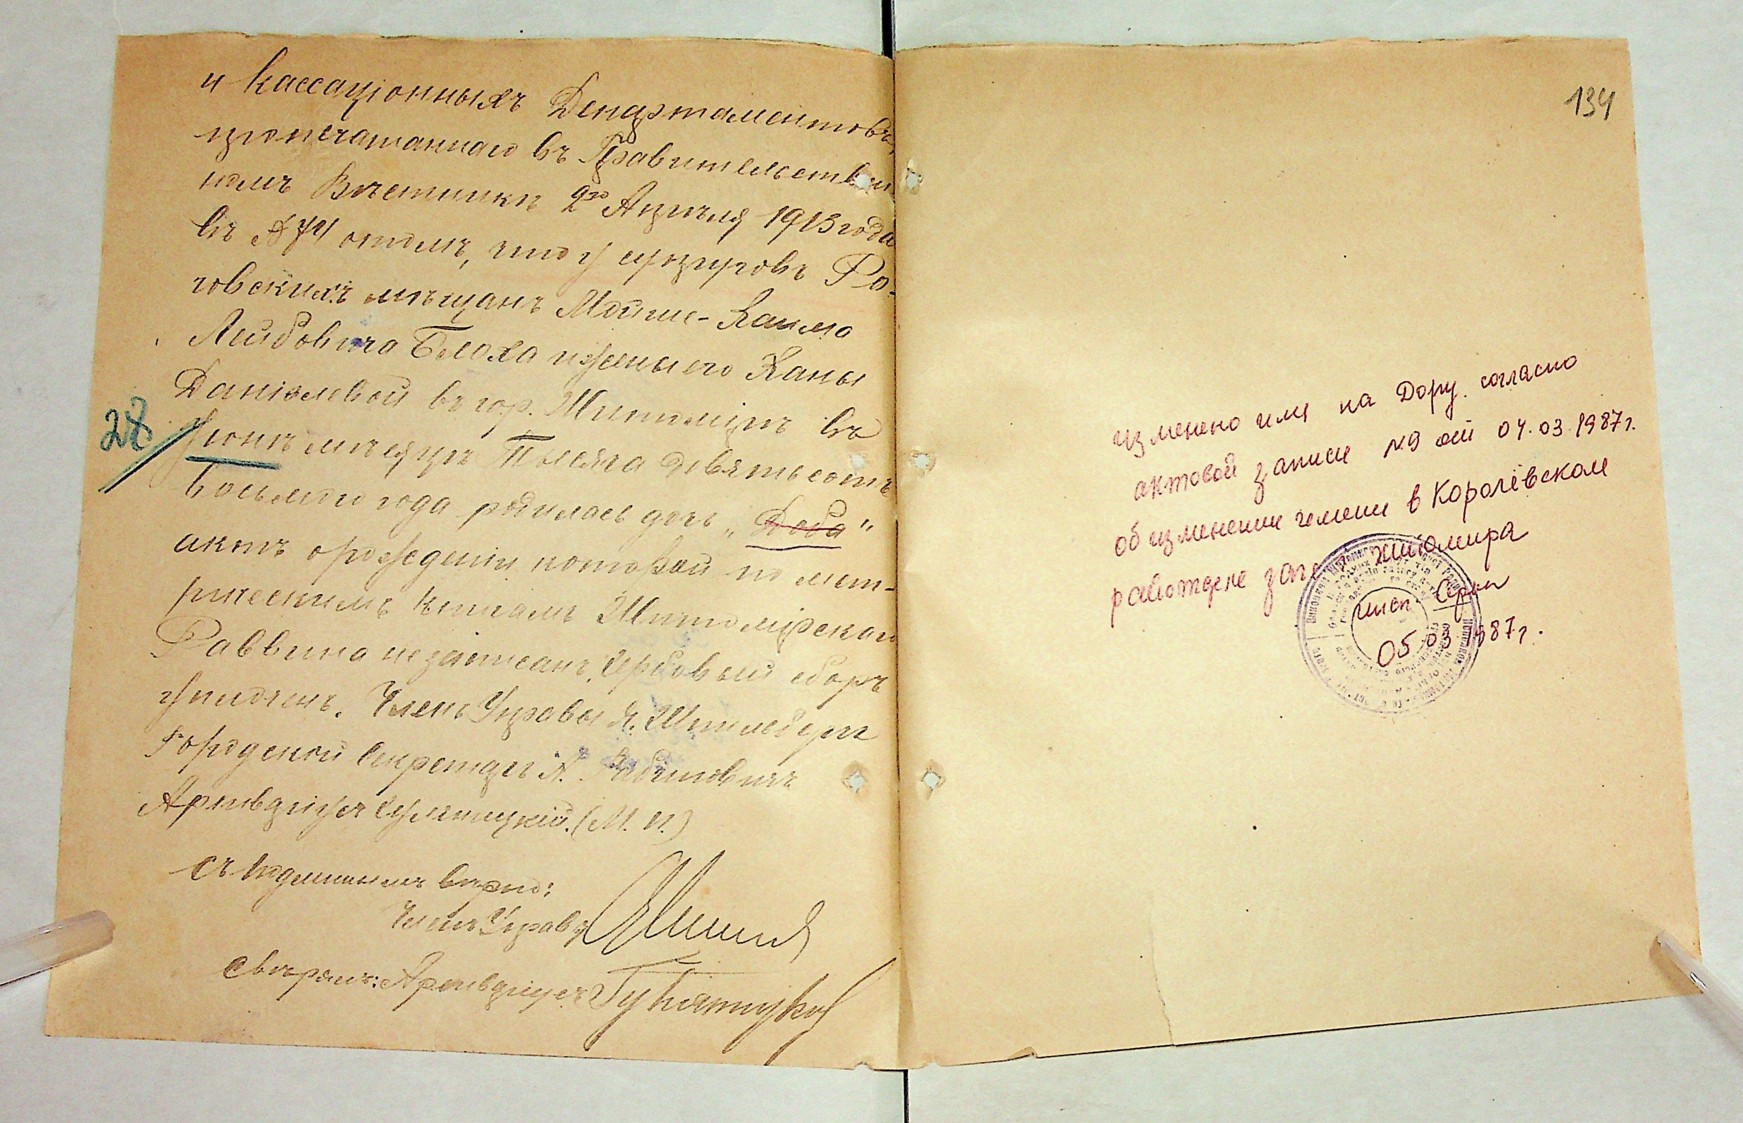 и Кассаціонныхъ Департаментовъ,
пропечатаннаго въ Правительствен
номъ Вѣстникѣ 2го Апрѣля 1913 года
въ № 74 о томъ, что у супруговъ Ро-
говскихъ мѣщанъ Мойше-Хаима
Лейбовича Блоха и жены его Ханы
Даніэлевой въ гор. Житомірѣ въ
28 Іюнѣ мѣсяцѣ Тысяча девятьсотъ
восьмого года родилась дочь „Доба"
актъ о рожденіи которой по мет-
рическимъ книгамъ Житомірскаго
Раввина не записанъ. Гербовый сборъ
уплоченъ. Членъ Управы
Городской Секретарь А. Рабиновичъ
Архиваріусъ (М. П.)
Съ подлиннымъ вѣрно:
Членъ Управы
Свѣрялъ: Архиваріусъ
134
изменено имя на Дору согласно
актовой записи №9 от 04.03.1987г.
об изменении имени в Королёвском
райотделе загс г. Житомира
инсп.
05 03 1987г.